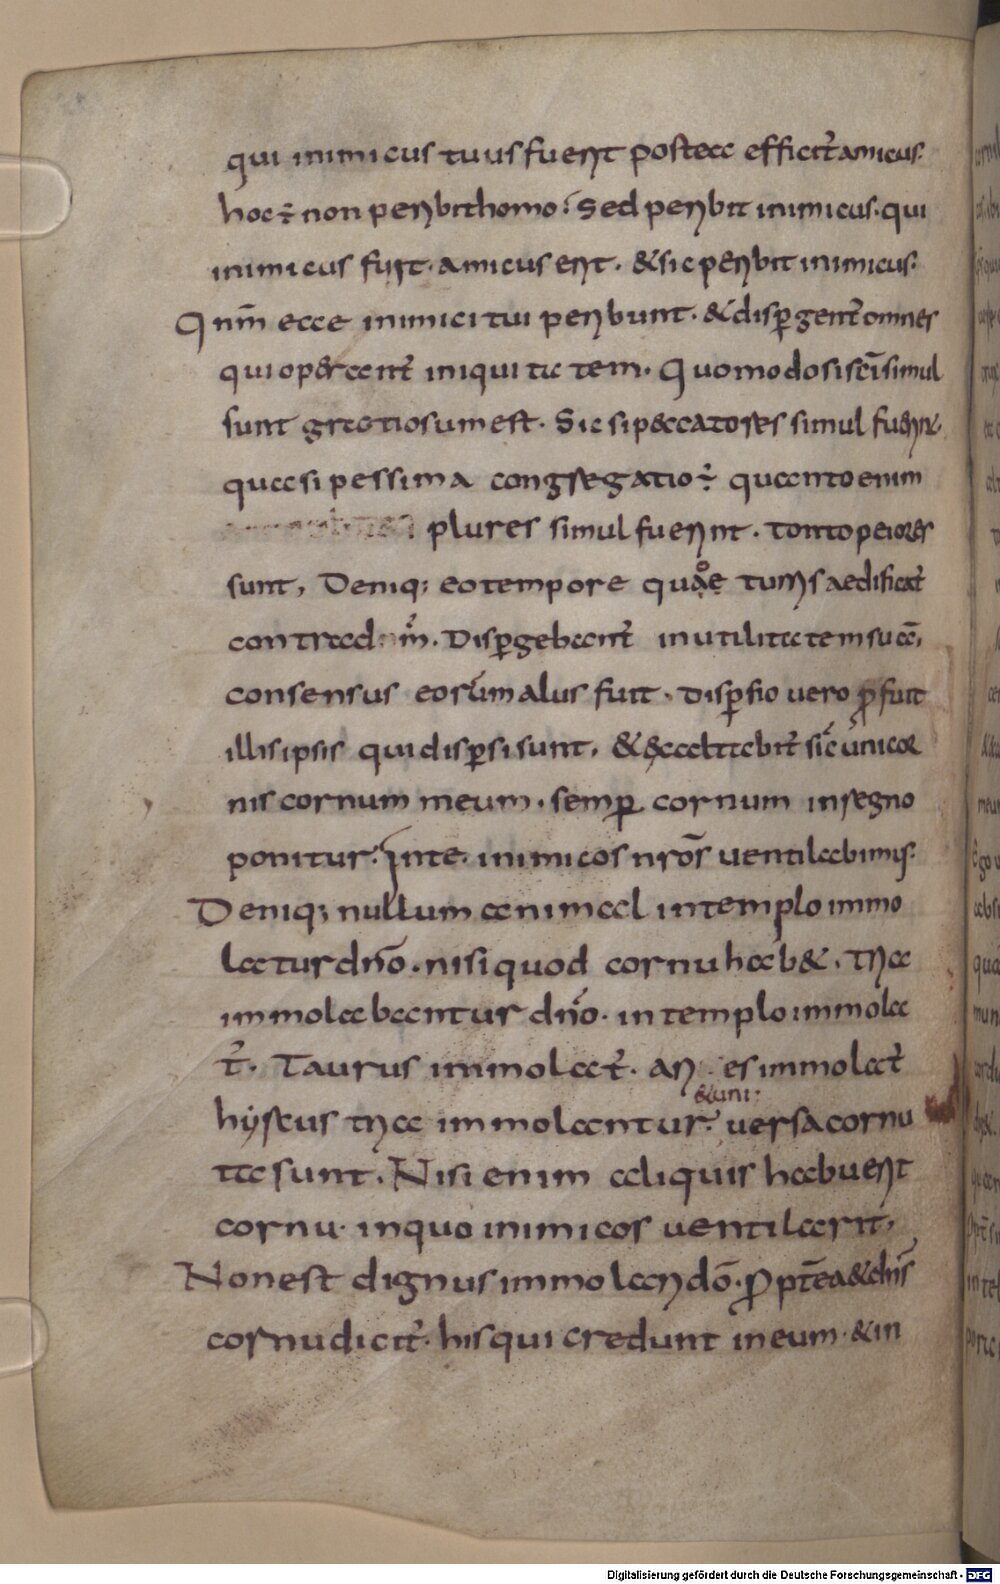 qui inimicus tuus fuerit postea efficit͛ amicus·
hoc ÷ non peribit homo; Sed peribit inimicus· qui
inimicus fuit· amicus erit· & sic peribit inimicus·
Qnm̄ ecce inimici tui peribunt· & disp̱gent͛ omnes
qui operant͛ iniquitatem· Quomodo si sc̄i simul
sunt gratiosum est· Sic si peccatores simul fuerint·
quasi pessima congregatio ÷ quanto enim
plures simul fuerint· tanto peiores
sunt, Deniq; eo tempore quo turris aedificat͛
contra dm̄· Disp̱gebant͛ in utilitatem suā,
consensus eorum malus fuit· Disp̱sio uero ꝓfuit
illis ipsis qui disp̱si sunt, & exaltabit͛ sic̄ unicor
nis cornum meum· semp̱ cornum in regno
ponitur· In te inimicos nr̄os uentilabimus·
Deniq; nullum animal in templo immo
latur dn̄o· nisi quod cornu hab&· tria
immolabantur dn̄o· in templo immola
t͛· Taurus immolat͛· aries immolat͛
hyrcus tria immolantur· uersa cornu
&uni·
ta sunt· Nisi enim aliquis habuerit
cornu· in quo inimicos uentilarit,
Non est dignus immolando· ꝓpt̄ea & chs̄
cornu dicit͛· his qui credunt in eum· & in
Digitalisierung gefördert durch die Deutsche Forschungsgemeinschaft - DFG